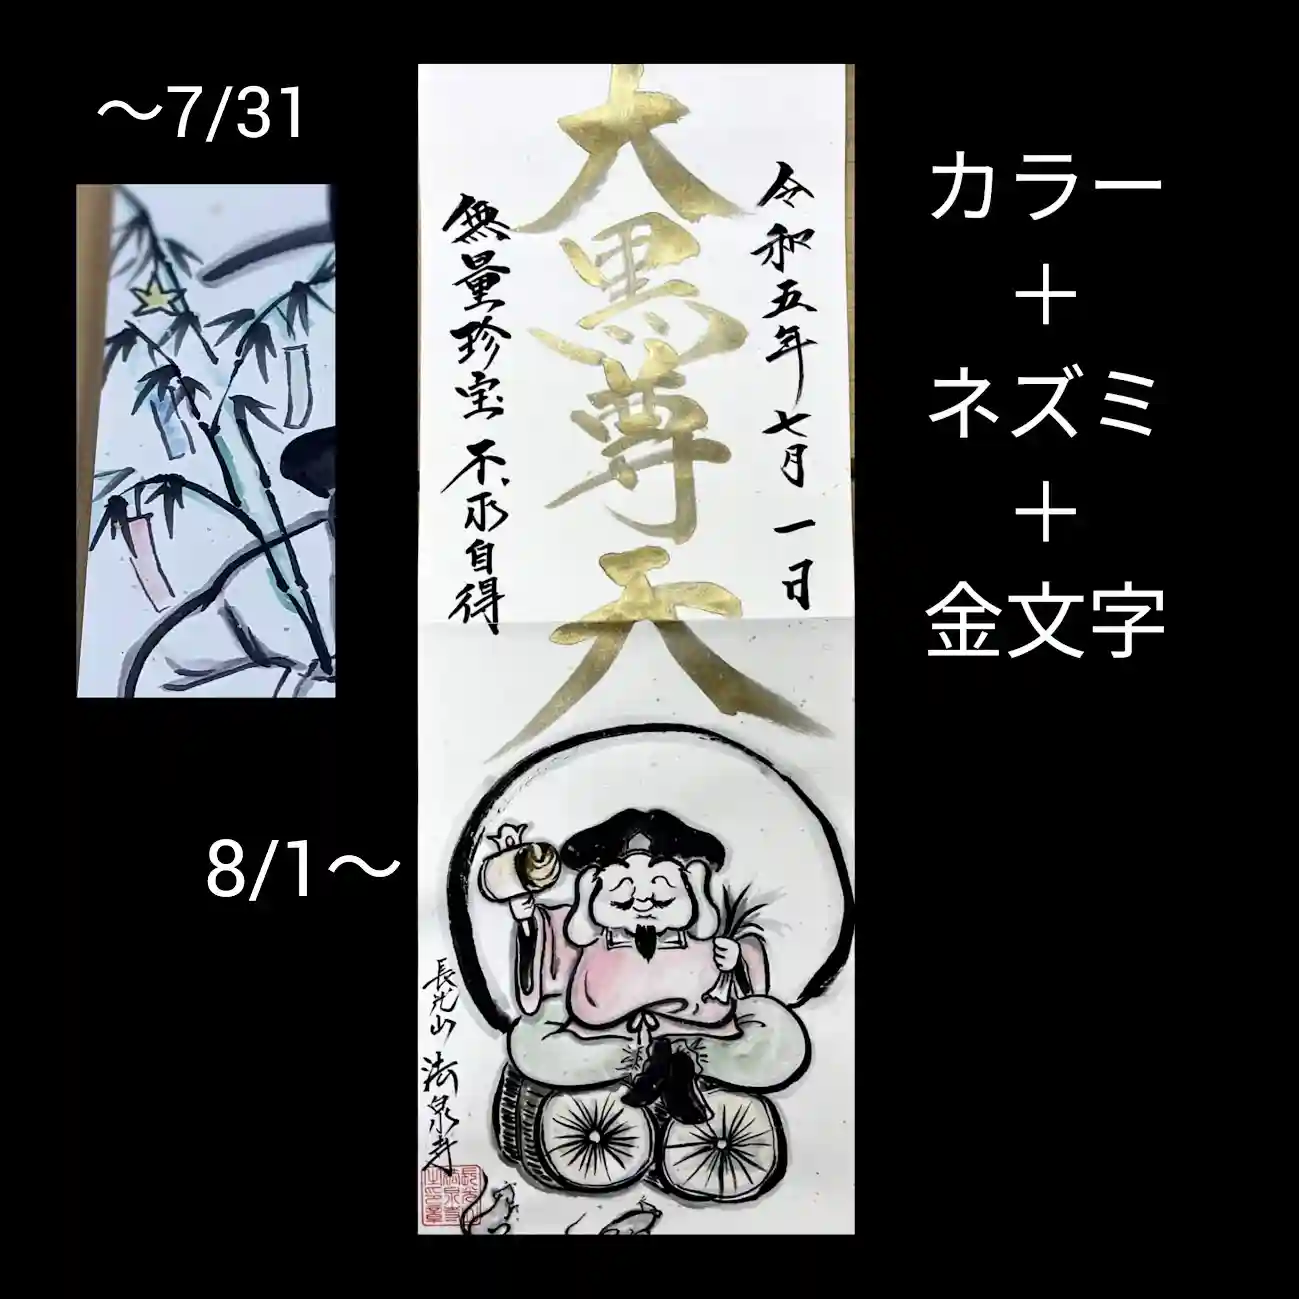 〜7/31
8/1〜
大黒尊天
令和五年七月一日
無量珍宝不求自得
長光山法泉寺
カラー
＋
ネズミ
＋
金文字